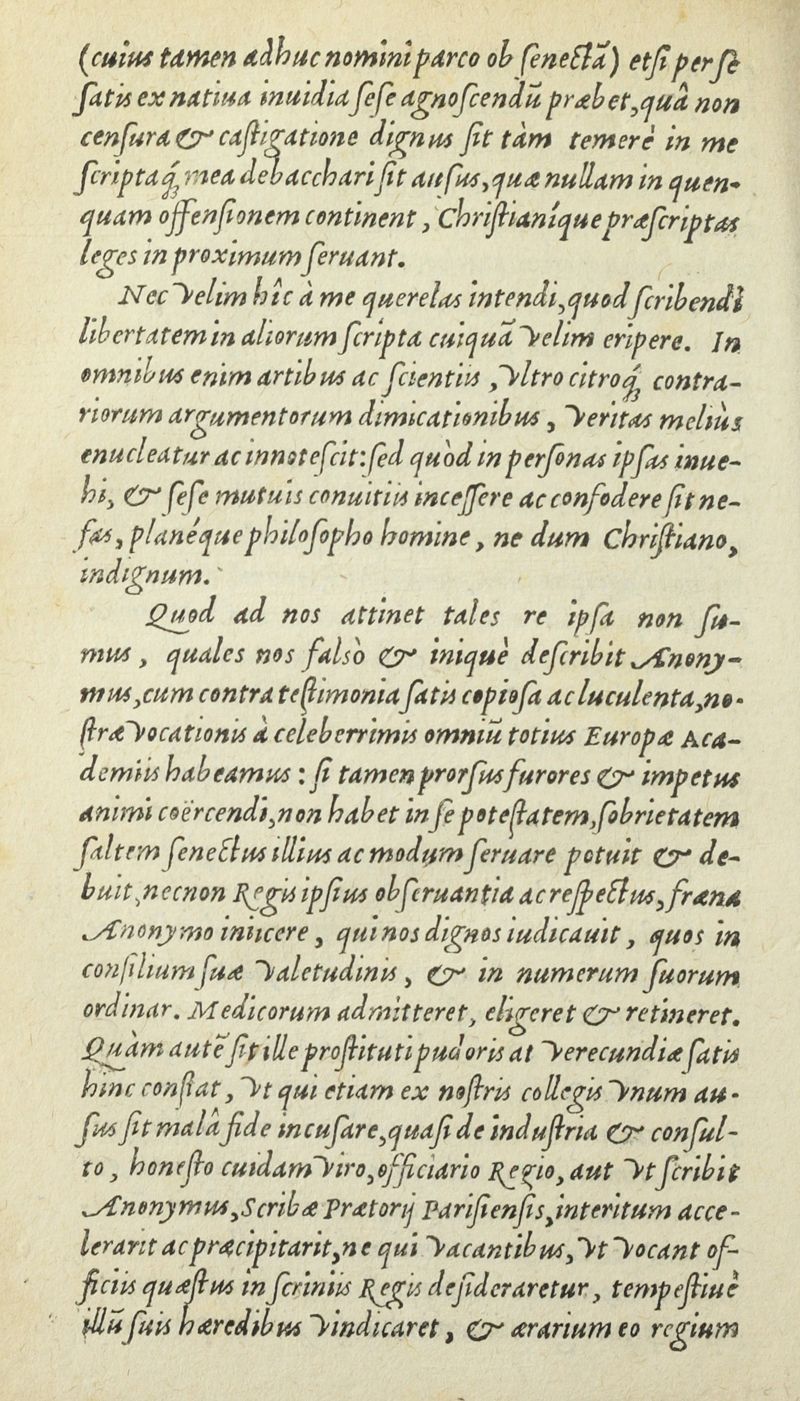 (cuius tamen adhuc nomini parco ob ſenectã) etſi per ſe
ſatis ex natiua inuidia ſeſe agnoſcendũ præbet, quâ non
cenſura & caſtigatione dignus ſit tàm temerè in me
ſcriptaq́; mea debacchari ſit auſus, quæ nullam in quen-
quam offenſionem continent, Chriſtianíque præſcriptas
leges in proximum ſeruant.
Nec velim hîc à me querelas intendi, quod ſcribendi
libertatem in aliorum ſcripta cuiquã velim eripere. In
omnibus enim artibus ac ſcientiis, vltro citroq́; contra-
riorum argumentorum dimicationibus, veritas meliùs
enucleatur ac innoteſcit: ſed quòd in perſonas ipſas inue-
hi, & ſeſe mutuis conuitiis inceſſere ac confodere ſit ne-
fas, planéque philoſopho homine, ne dum Chriſtiano,
indignum.
Quod ad nos attinet tales re ipſa non ſu-
mus, quales nos falsò & iniquè deſcribit Anony-
mus, cum contra teſtimonia ſatis copioſa ac luculenta, no-
ſtræ vocationis à celeberrimis omniũ totius Europæ Aca-
demiis habeamus: ſi tamen prorſus furores & impetus
animi coërcendi, non habet in ſe poteſtatem, ſobrietatem
ſaltem ſenectus illius ac modum ſeruare potuit & de-
buit, necnon Regis ipſius obſeruantia ac reſpectus, fræna
Anonymo iniicere, qui nos dignos iudicauit, quos in
conſilium ſuæ valetudinis, & in numerum ſuorum
ordinar. Medicorum admitteret, eligeret & retineret.
Quàm autẽ ſit ille proſtituti pudoris at verecundiæ ſatis
hinc conſtat, vt qui etiam ex noſtris collegis vnum au-
ſus ſit malâ fide incuſare, quaſi de induſtria & conſul-
to, honeſto cuidam viro, officiario Regio, aut vt ſcribit
Anonymus, Scribæ Prætorij Pariſienſis, interitum acce-
lerarit ac præcipitarit, ne qui vacantibus, vt vocant of-
ficiis quæſtus in ſcriniis Regis deſideraretur, tempeſtiuè
illũ ſuis hæredibus vindicaret, & ærarium eo regium